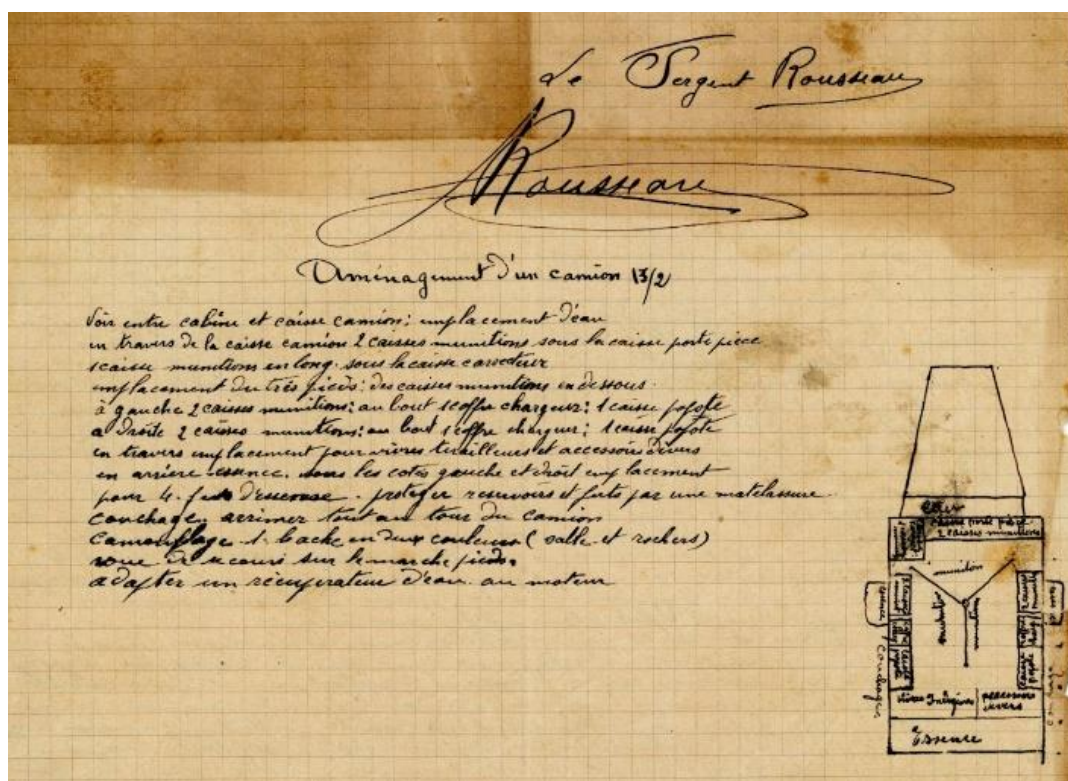 Le Sergent Rousseau
Rousseau
Aménagement d'un camion 13/2
Voir entre cabine et caisse camion; emplacement d'eau
en travers de la caisse camion 2 caisses munitions sous la caisse porte pièce
1 caisse munitions en long sous la caisse correcteur
emplacement du très pieds: des caisses munitions en dessous
à gauche 2 caisses munitions; au bout 1 coffre chargeur; 1 caisse popote
a droite 2 caisses munitions; au bout 1 coffre chargeur; 1 caisse popote
en travers emplacement pour vivres tirailleurs et accessoires divers
en arrière essence. sous les cotés gauche et droit emplacement
pour 4 futs d'essence. protéger reservoirs et futs par une matelassure
couchage arrimer tout au tour du camion
camouflage 1 bache en deux couleurs (sable et rochers)
roue de secours sur le marche pieds.
adapter un récuperateur d'eau au moteur
eau
caisse porte pièce
2 caisses munitions
munition
munition
munition
essence
2 caisses
caisse popote
couchages
vivres Indigènes
accessoires divers
Essence